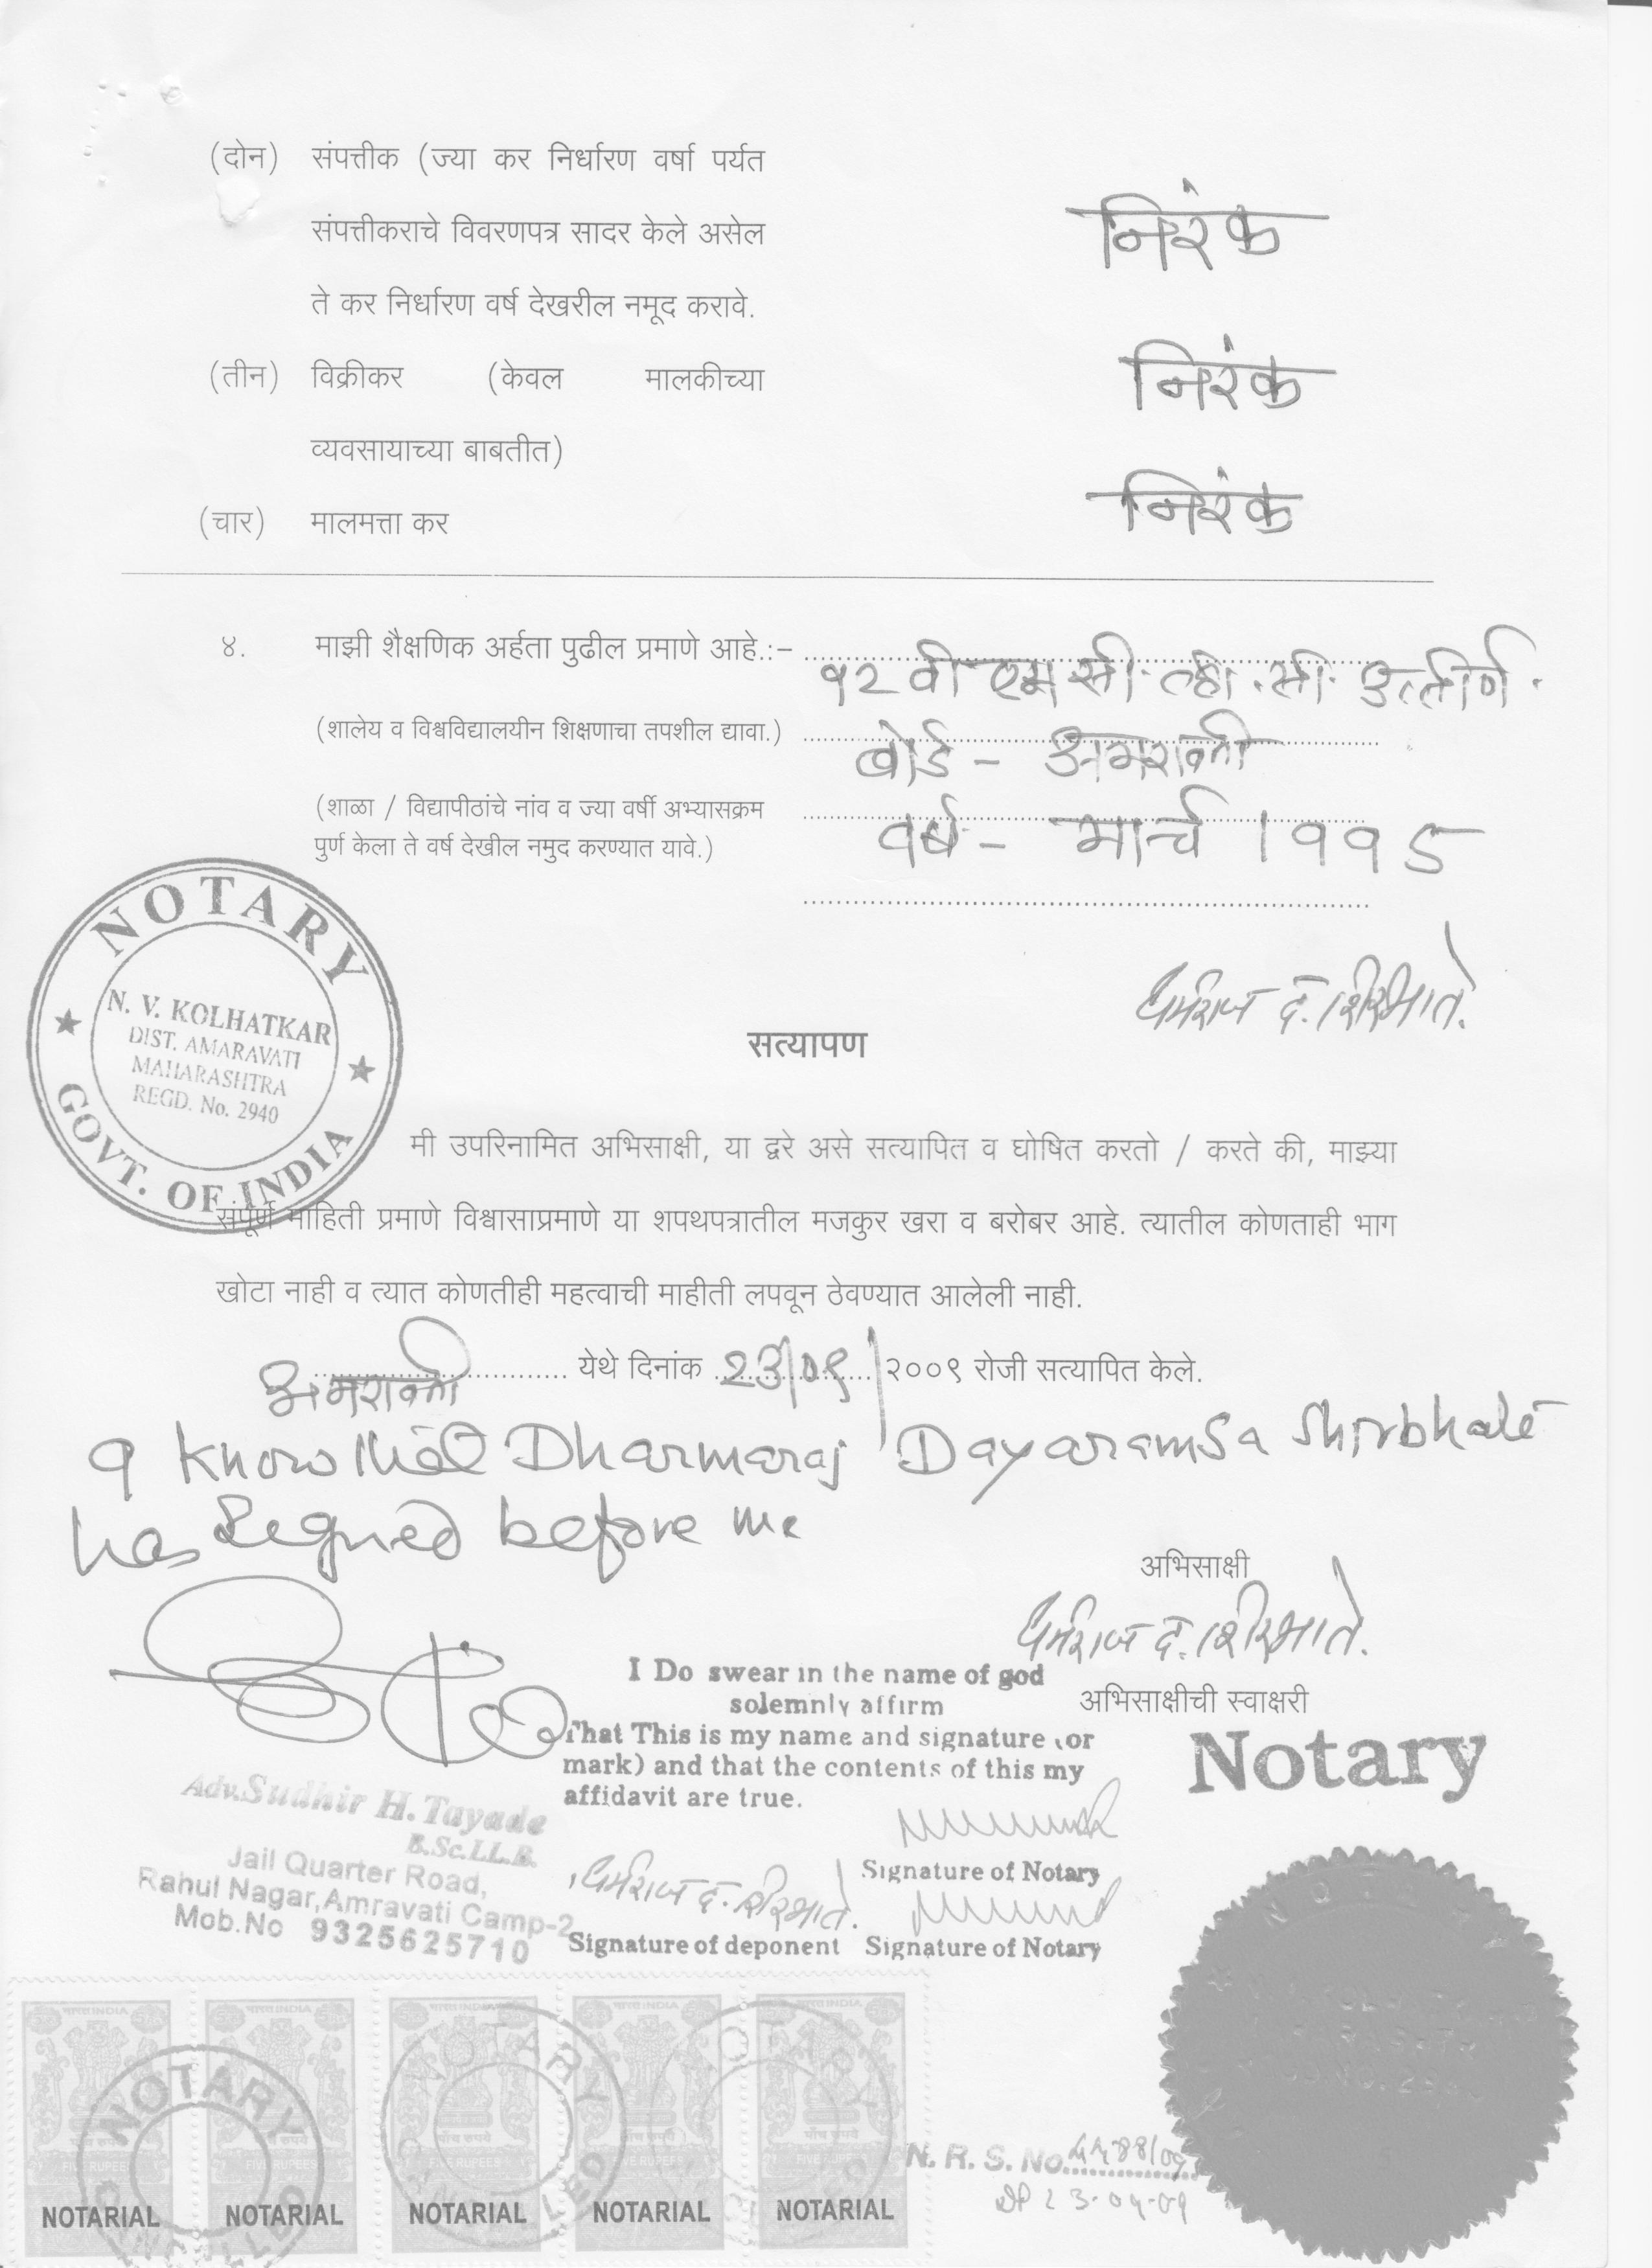 (दोन) संपत्तीक (ज्या कर निर्धारण वर्षा पर्यत
संपत्तीकराचे विवरणपत्र सादर केले असेल निरंक
ते कर निर्धारण वर्ष देखरील नमूद करावे.
(तीन) विक्रीकर (केवल मालकीच्या निरंक
व्यवसायाच्या बाबतीत)
(चार) मालमत्ता कर निरंक
४. माझी शैक्षणिक अर्हता पुढील प्रमाणे आहे.:- १२ वी एम.सी.व्ही.सी. उत्तीर्ण.
(शालेय व विश्वविद्यालयीन शिक्षणाचा तपशील द्यावा.) बोर्ड - अमरावती
(शाळा / विद्यापीठांचे नांव व ज्या वर्षी अभ्यासक्रम वर्ष - मार्च १९९५
पुर्ण केला ते वर्ष देखील नमुद करण्यात यावे.)
धर्मराज द. शिरभाते.
NOTARY
N. V. KOLHATKAR
DIST. AMARAVATI
MAHARASHTRA
REGD. No. 2940
GOVT. OF INDIA
सत्यापण
मी उपरिनामित अभिसाक्षी, या द्वरे असे सत्यापित व घोषित करतो / करते की, माझ्या
संपूर्ण माहिती प्रमाणे विश्वासाप्रमाणे या शपथपत्रातील मजकुर खरा व बरोबर आहे. त्यातील कोणताही भाग
खोटा नाही व त्यात कोणतीही महत्वाची माहीती लपवून ठेवण्यात आलेली नाही.
अमरावती येथे दिनांक २३/०९/२००९ रोजी सत्यापित केले.
I know that Dharmaraj Dayaramsa Shirbhate
has signed before me
अभिसाक्षी
धर्मराज द. शिरभाते.
अभिसाक्षीची स्वाक्षरी
I Do swear in the name of god
solemnly affirm
That This is my name and signature (or
mark) and that the contents of this my
affidavit are true.
Notary
Adv. Sudhir H. Tayade
B.Sc.LL.B.
Jail Quarter Road,
Rahul Nagar, Amravati Camp-2
Mob.No 9325625710
Signature of Notary
धर्मराज द. शिरभाते.
Signature of deponent Signature of Notary
भारत INDIA भारत INDIA भारत INDIA भारत INDIA भारत INDIA
NOTARY NOTARY NOTARY
पाँच रुपये पाँच रुपये पाँच रुपये पाँच रुपये पाँच रुपये
FIVE RUPEES FIVE RUPEES FIVE RUPEES FIVE RUPEES FIVE RUPEES
NOTARIAL NOTARIAL NOTARIAL NOTARIAL NOTARIAL
N. R. S. No.